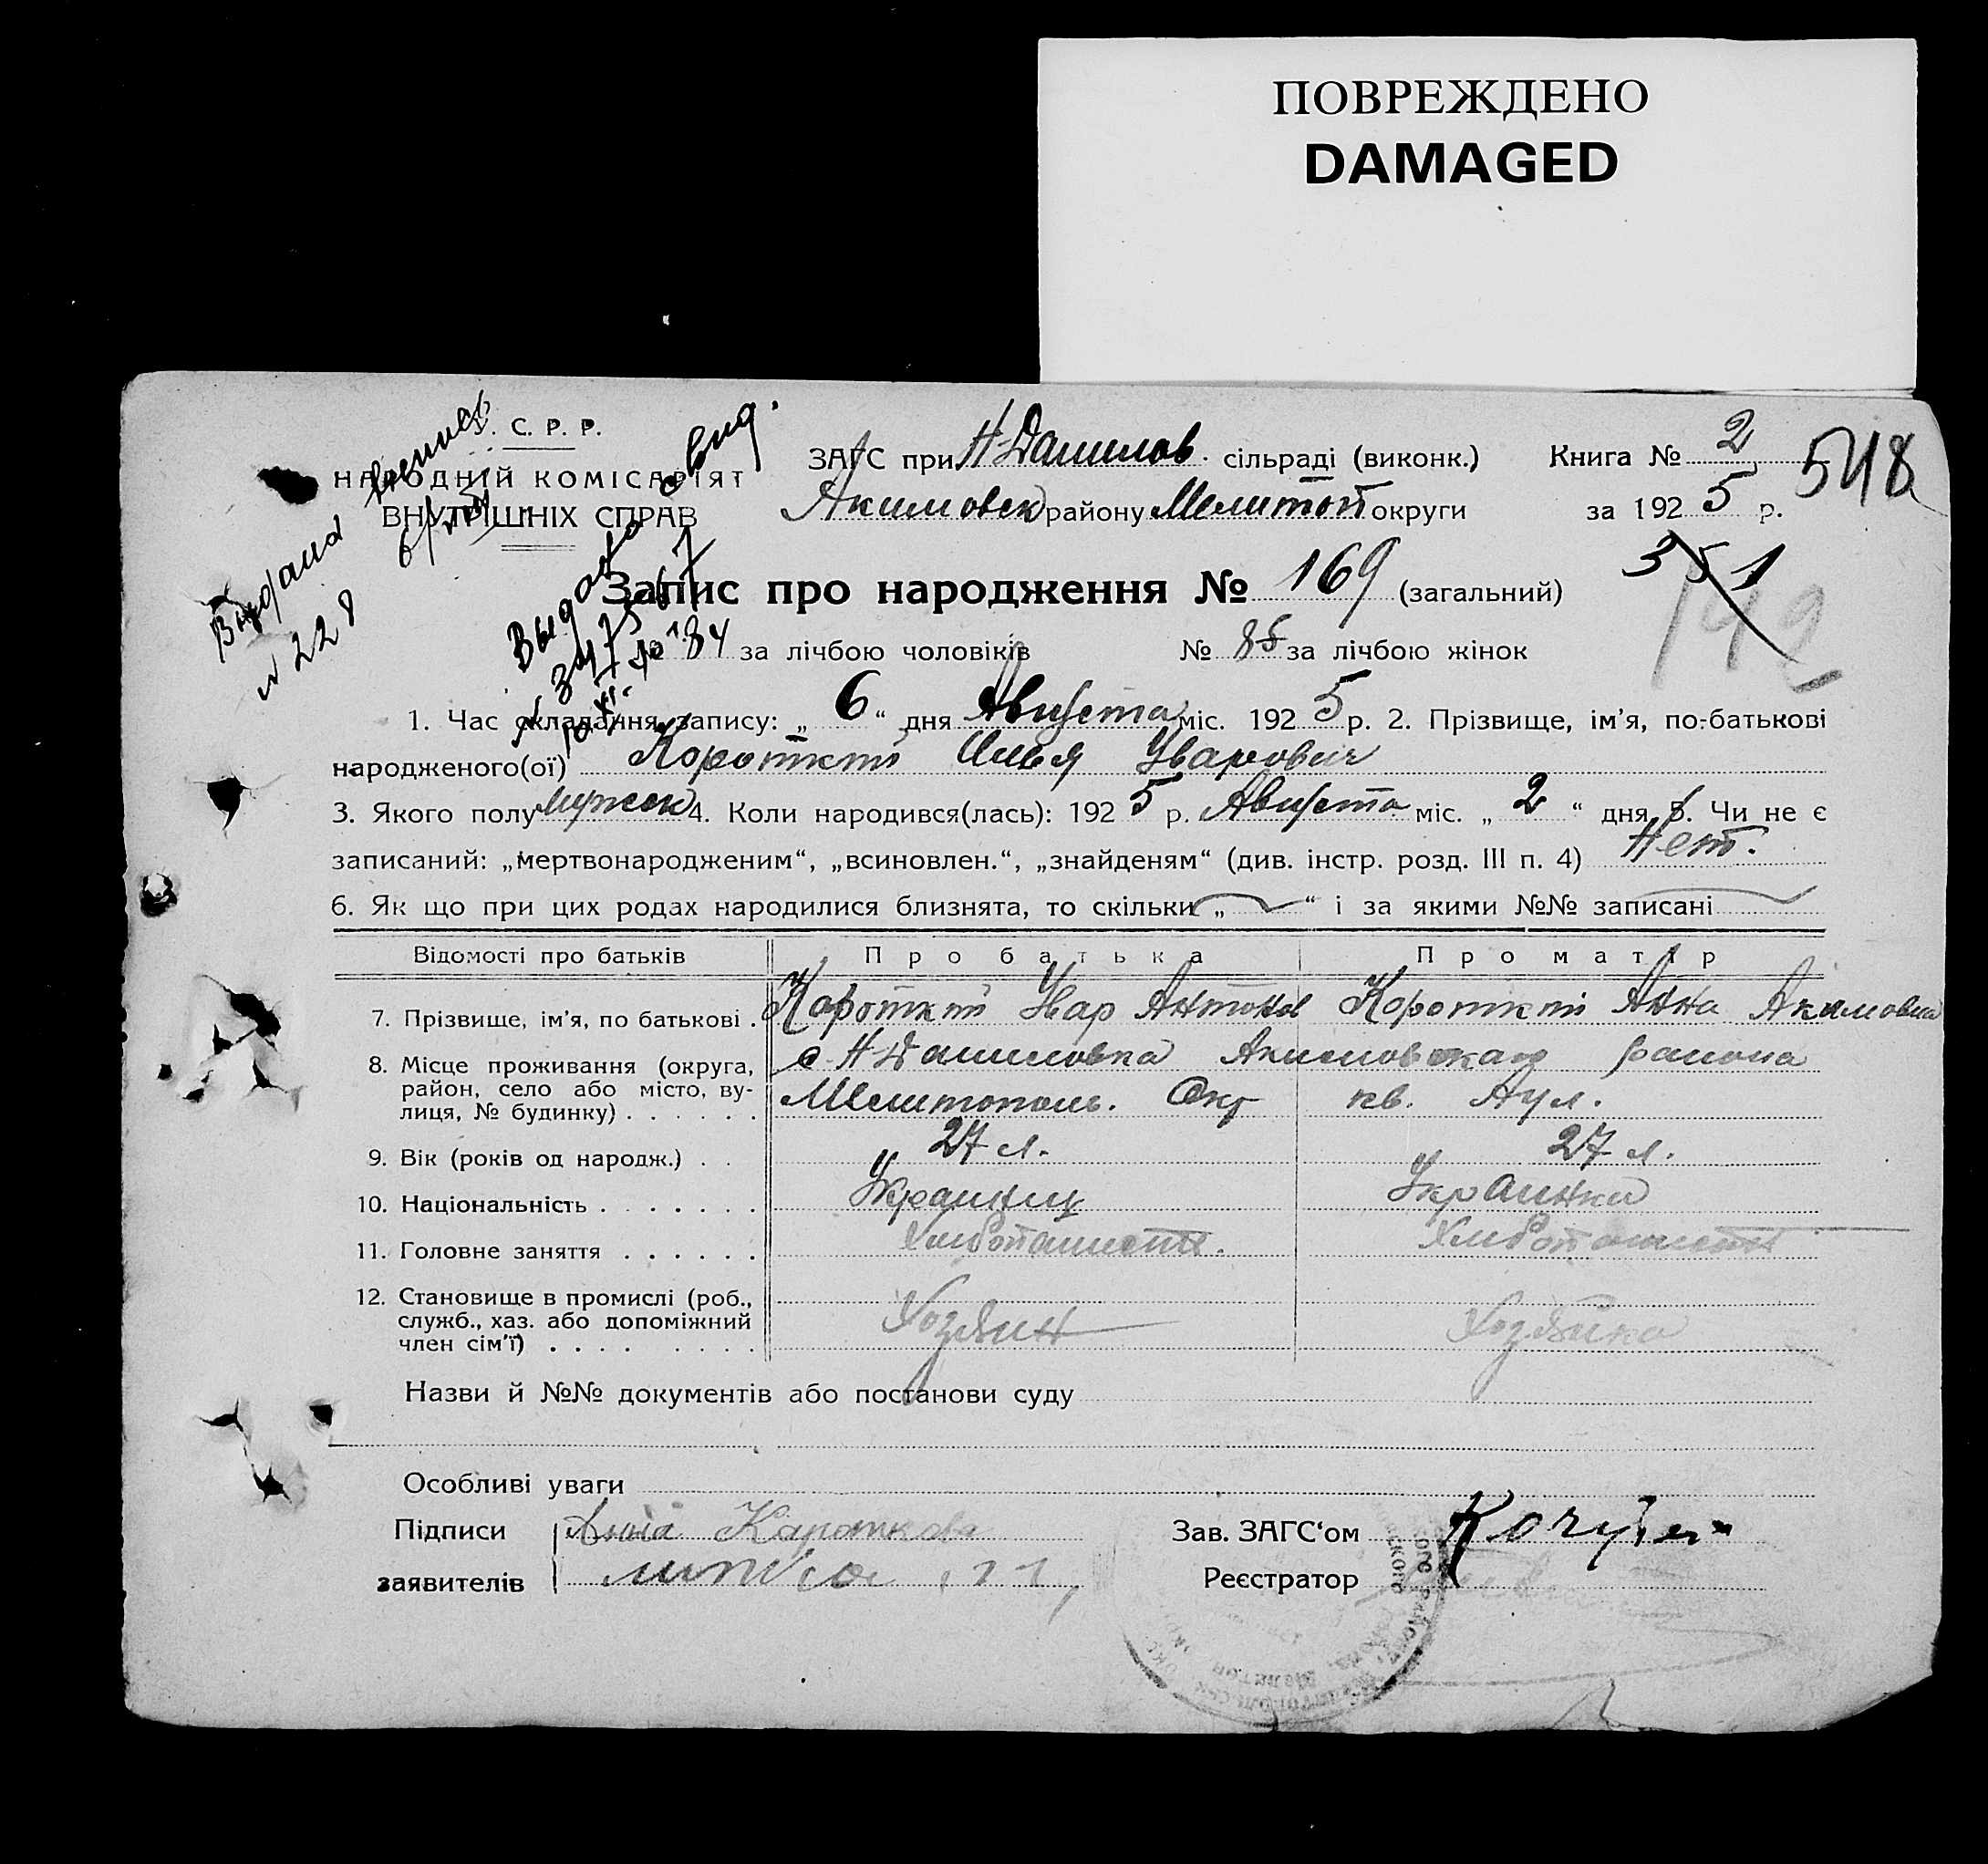 ПОВРЕЖДЕНО
DAMAGED
У. С. Р. Р.
НАРОДНІЙ КОМІСАРІЯТ
ВНУТРІШНІХ СПРАВ
Видана
№ 228
ЗАГС при Н-Данилов. сільраді (виконк.)
Книга № 2
548
Акимовск району Мелитоп округи
за 1925 р.
351
142
Запис про народження № 169 (загальний)
№ 84 за лічбою чоловіків № 85 за лічбою жінок
1. Час складання запису: „ 6 “ дня Августа міс. 1925 р. 2. Прізвище, ім’я, по-батькові
народженого(ої) Короткий Илья Уварович
3. Якого полу мужск 4. Коли народився(лась): 1925 р. Августа міс. „ 2 “ дня 5. Чи не є
записаний: „мертвонародженим“, „всиновлен.“, „знайденям“ (див. інстр. розд. III п. 4) Нет.
6. Як що при цих родах народилися близнята, то скільки „ “ і за якими №№ записані
Відомості про батьків Про батька Про матір
7. Прізвище, ім’я, по батькові . Короткий Увар Антонов Короткий Анна Акимовна
8. Місце проживання (округа, с. Н-Даниловка Акимовскаго района
район, село або місто, ву-
лиця, № будинку) . . . . . . Мелитополь. Окр кв. Аул.
9. Вік (років од народж.) . . 27 л. 27 л.
10. Національність . . . . . . . Украинец Украинка
11. Головне заняття . . . . . . Хлебопашест. Хлебопашест
12. Становище в промислі (роб.,
служб., хаз. або допоміжний Хозяин Хозяйка
член сім’ї) . . . . . . . .
Назви й №№ документів або постанови суду
Особливі уваги
Підписи Анна
заявителів
Зав. ЗАГС‘ом
Реєстратор